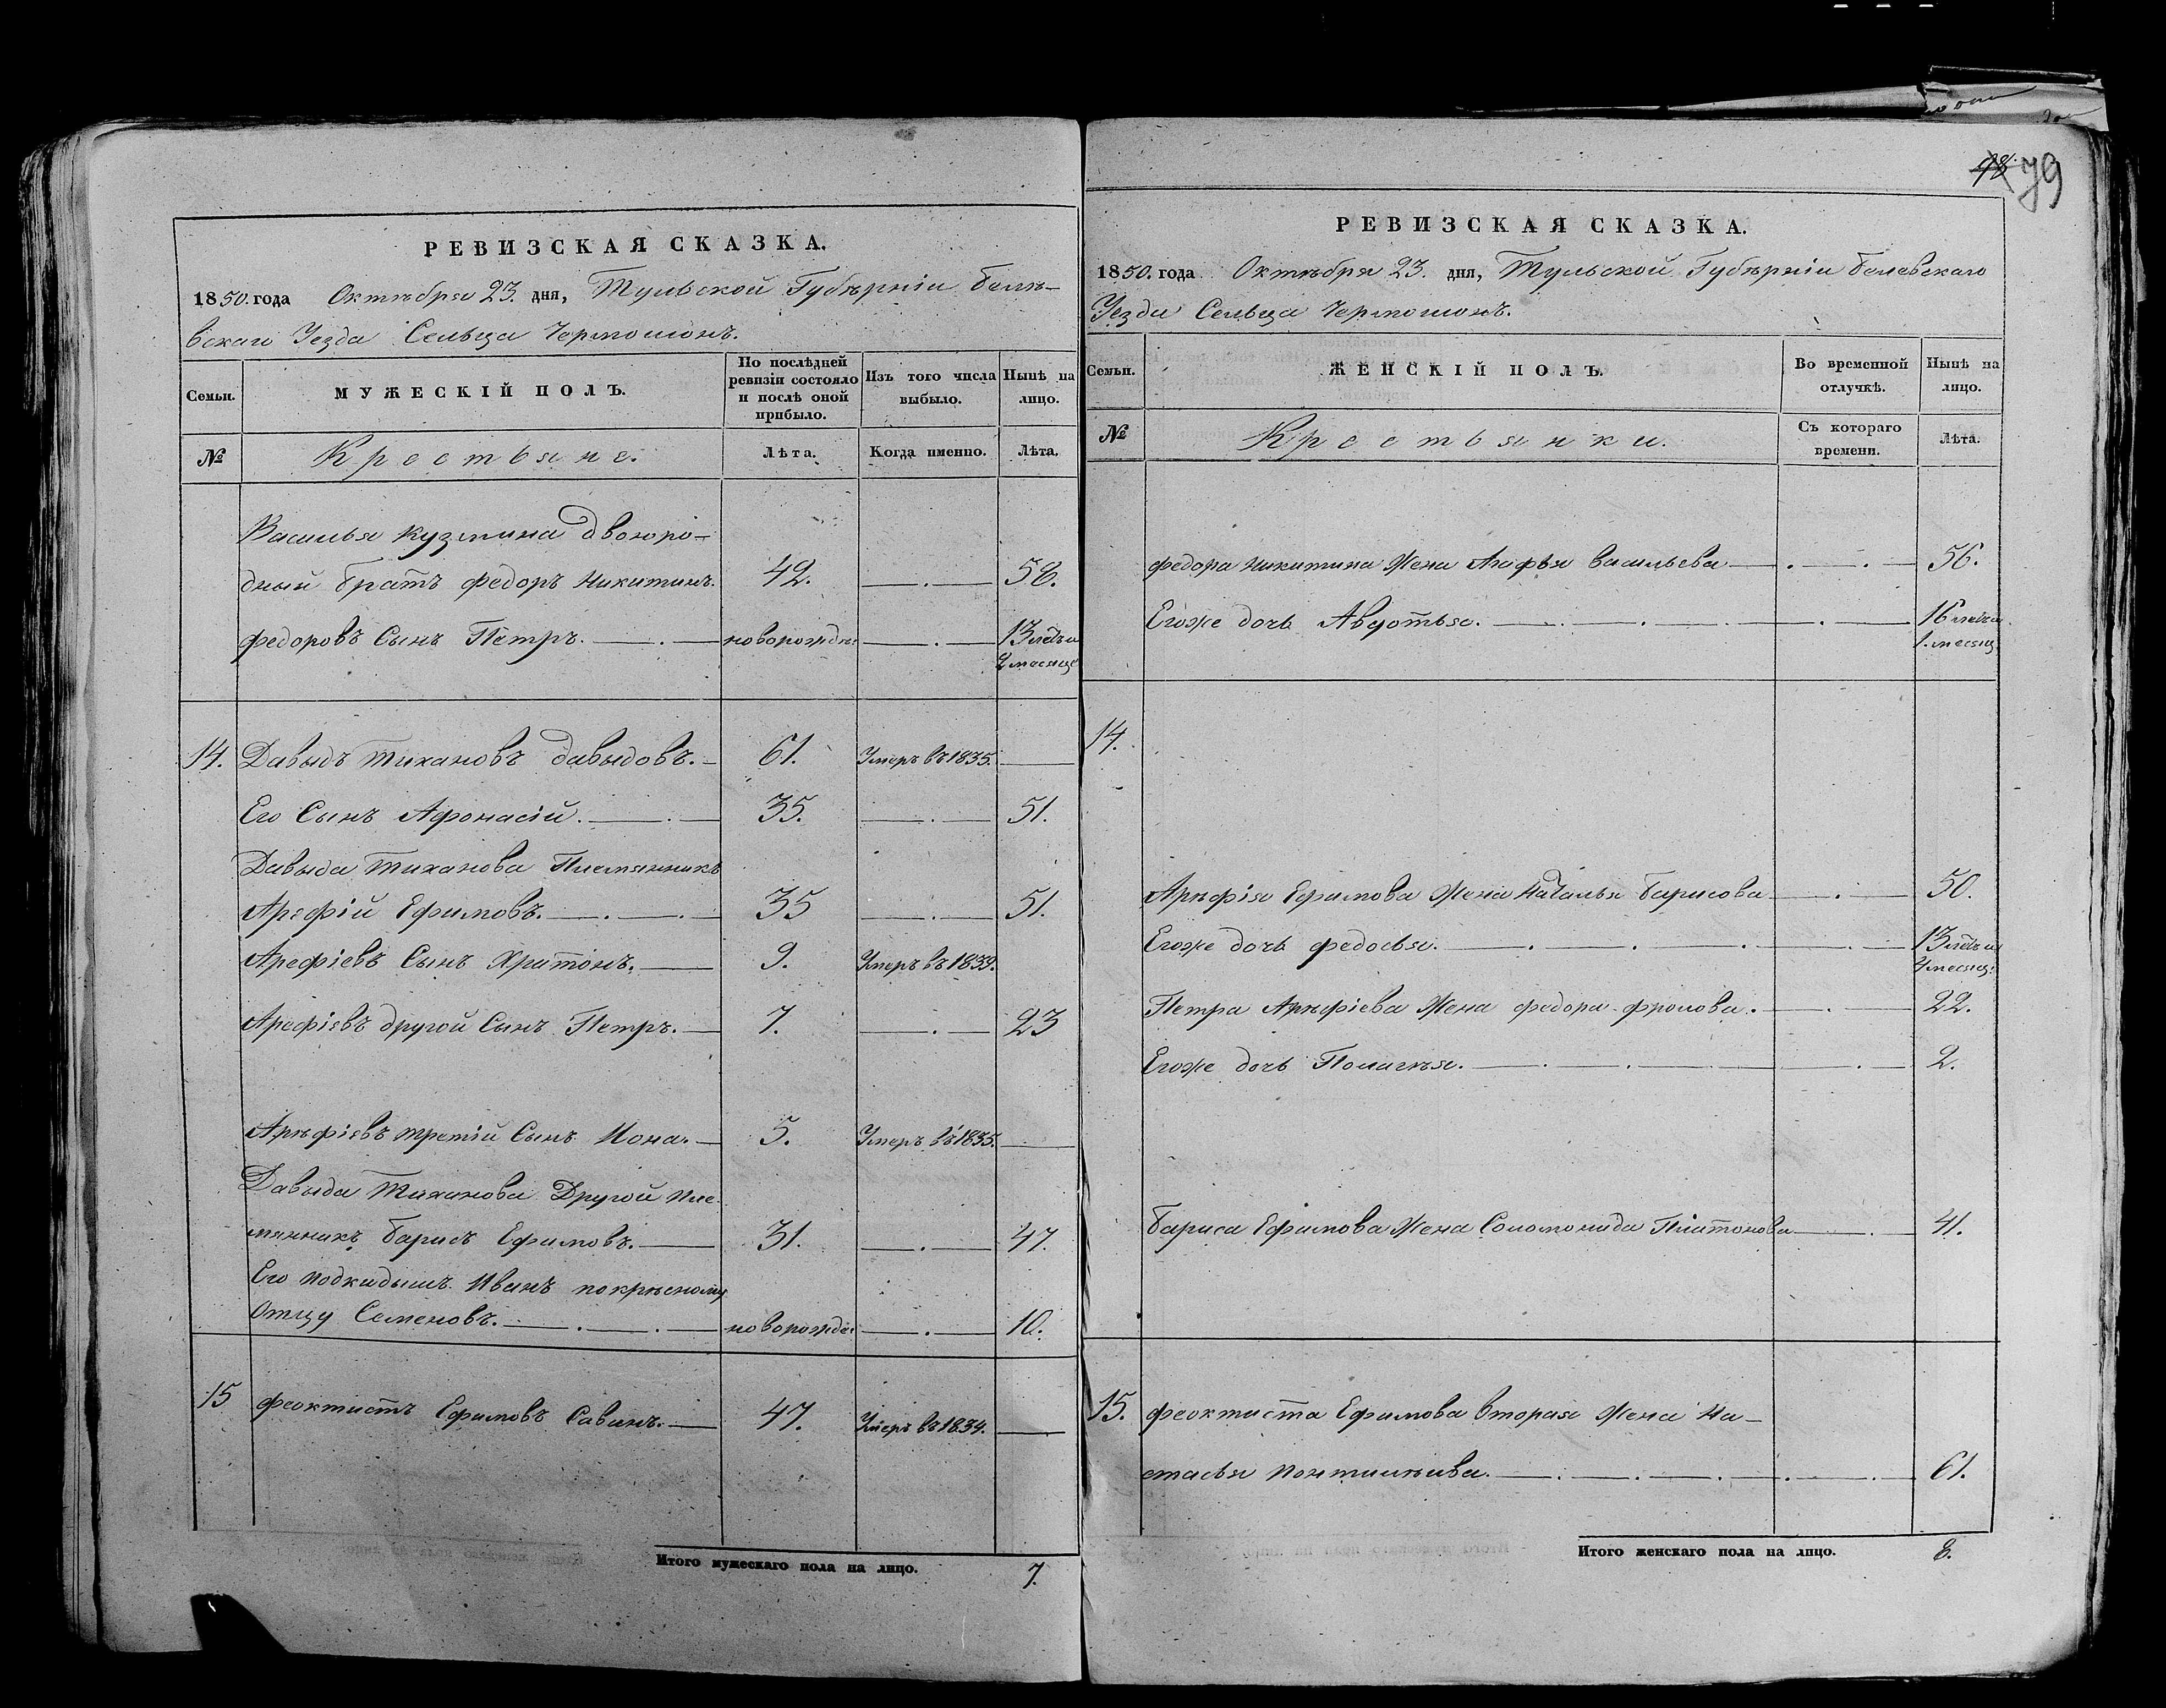 РЕВИЗСКАЯ СКАЗКА.
1850. года Октября 23. дня, Тульской Губерніи Беле-
вскаго Уезда Сельца Чермошонъ.
Семьи.
МУЖЕСКІЙ ПОЛЪ.
По послѣдней ревизіи состояло и послѣ оной прибыло.
Изъ того числа выбыло.
Нынѣ на лицо.
№
Крестьяне.
Лѣта.
Когда именно.
Лѣта.
Василья Кузмина двоюро-
дный братъ федоръ Никитинъ. 42. 58.
федоровъ Сынъ Петръ. новорожден 13 летъ и
2 месяце
14. Давыдъ Тихановъ Давыдовъ. 61. Умеръ въ 1835.
Его Сынъ Афонасій. 35. 51.
Давыда Тиханова Племянникъ
Арефій Ефимовъ. 35 51.
Арефіевъ Сынъ Хритонъ. 9. Умеръ въ 1839.
Арефіевъ другой Сынъ Петръ. 7. 23
Арѣфіевъ третій Сынъ Иона. 5. Умеръ въ 1835.
Давыда Тиханова Другой пле-
мянникъ Барисъ Ефимовъ. 31. 47.
Его подкидышъ Иванъ по крѣсному
Отцу Семеновъ. новорожден 10.
15 феоктистъ Ефимовъ Савинъ. 47. Умеръ въ 1834.
Итого мужескаго пола на лицо. 7.
98 79
РЕВИЗСКАЯ СКАЗКА.
1850. года Октября 23. дня, Тульской Губерніи Белевскаго
Уезда Сельца Чермошонъ.
Семьи.
ЖЕНСКІЙ ПОЛЪ.
Во временной отлучкѣ.
Нынѣ на лицо.
№
Крестьянки.
Съ котораго времени.
Лѣта.
федора Никитина Жена Агафья Васильева 56.
Егоже дочь Авдотья. 16 летъ и
1. месяц.
14.
Арѣфія Ефимова Жена Наталья Барисова 50.
Егоже дочь федосья. 13 летъ и
4 месяц.
Петра Арѣфіева Жена федора фролова. 22.
Егоже дочь Полагѣя. 2.
Бариса Ефимова Жена Соломонида Платонова 41.
15. феоктиста Ефимова вторая Жена На-
стасья 61.
Итого женскаго пола на лицо. 8.